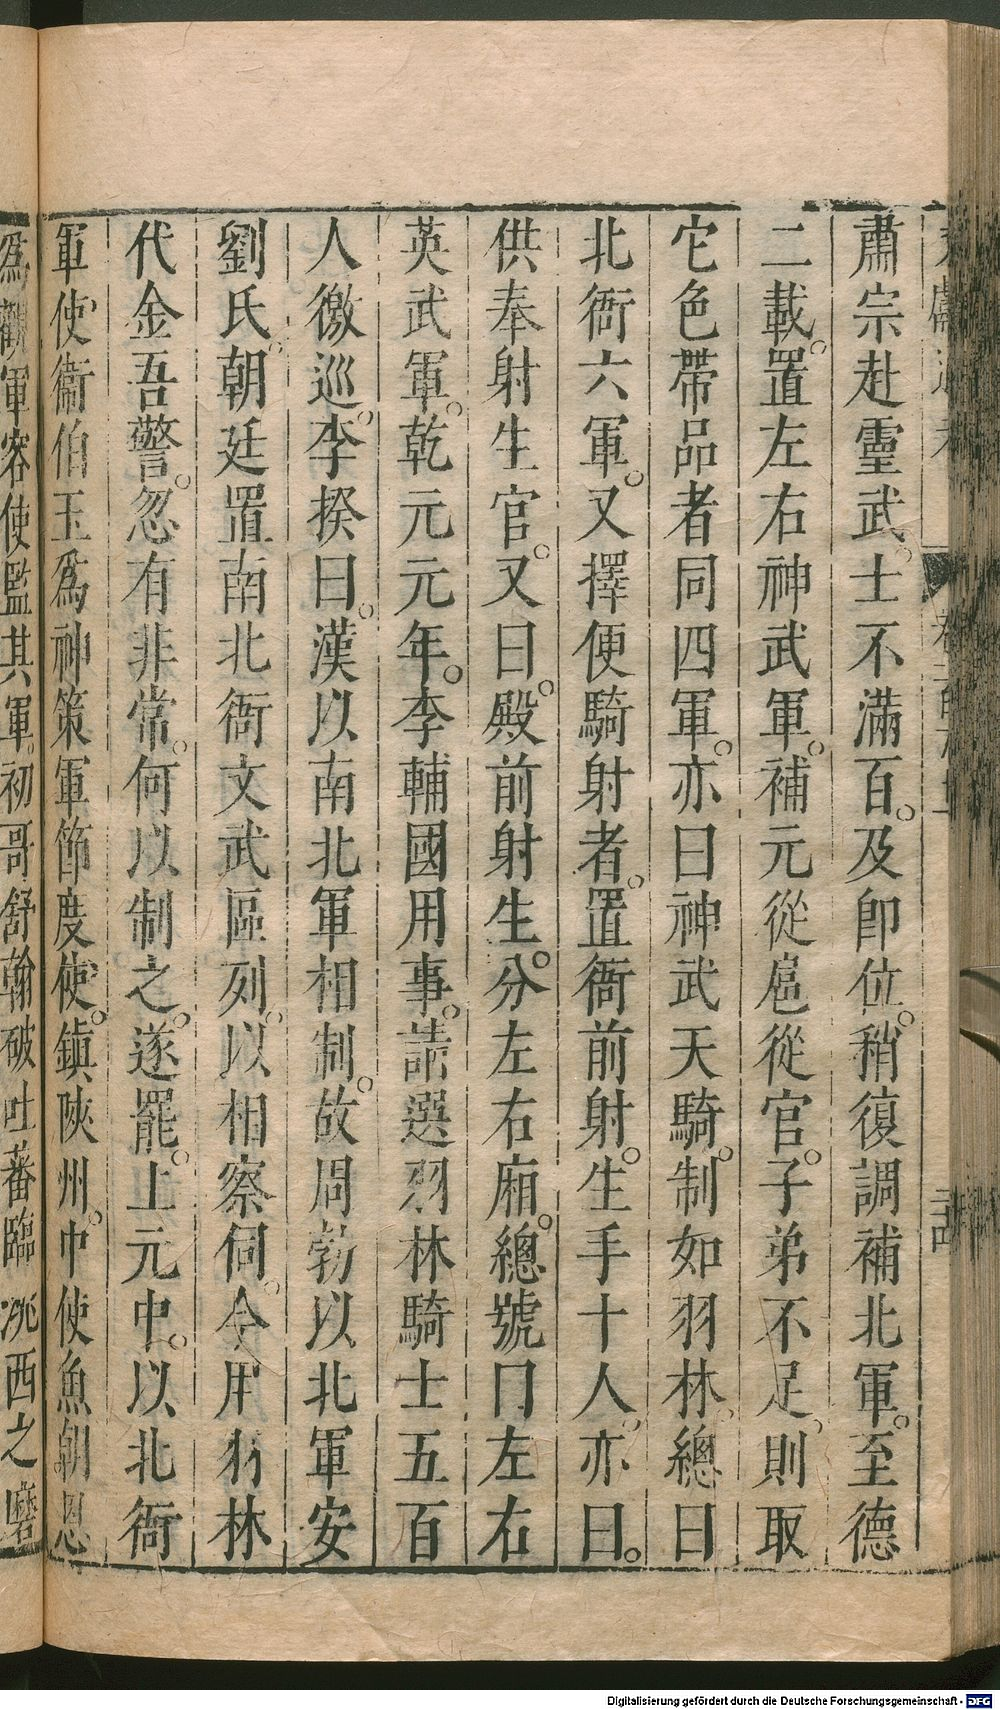 肅宗赴靈武士不滿百。及卽位。稍復調補北軍。至德
二載。置左右神武軍。補元從扈從官。子弟不足。則取
它色帶品者同四軍。亦曰神武天騎。制如羽林。總曰
北衙六軍。又擇便騎射者。置衙前射。生手十人。亦曰。
供奉射生官。又曰。殿前射生。分左右廂。總號曰左右
英武軍。乾元元年。李輔國用事。請選羽林騎士五百
人徼巡。李揆曰。漢以南北軍相制。故周勃以北軍安
劉氏。朝廷置南北衙文武區列。以相察伺。今用羽林
代金吾警。忽有非常。何以制之。遂罷。上元中。以北衙
軍使衞伯玉爲神策軍節度使。鎮陝州。中使魚朝恩
爲觀軍容使監其軍。初哥舒翰破吐蕃臨洮西之磨
Digitalisierung gefördert durch die Deutsche Forschungsgemeinschaft - DFG